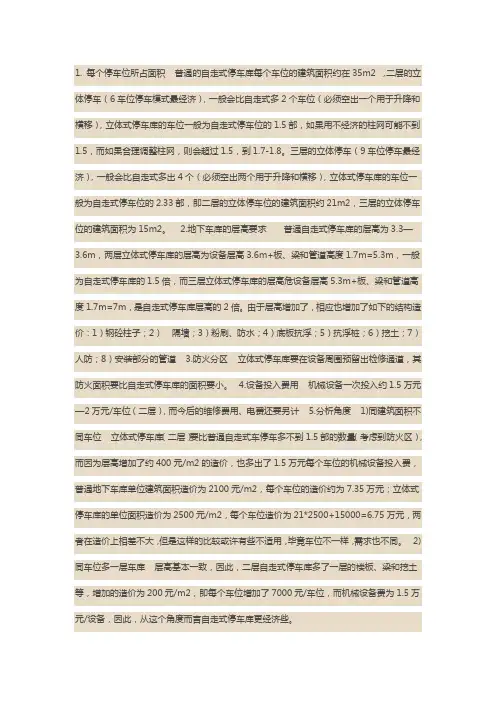 1. 每个停车位所占面积　普通的自走式停车库每个车位的建筑面积约在35m2 ,二层的立
体停车（6车位停车模式最经济），一般会比自走式多2个车位（必须空出一个用于升降和
横移），立体式停车库的车位一般为自走式停车位的1.5部，如果用不经济的柱网可能不到
1.5，而如果合理调整柱网，则会超过1.5，到1.7-1.8。三层的立体停车（9车位停车最经
济），一般会比自走式多出4个（必须空出两个用于升降和横移），立体式停车库的车位一
般为自走式停车位的2.33部，即二层的立体停车位的建筑面积约21m2，三层的立体停车
位的建筑面积为15m2。　2.地下车库的层高要求　　普通自走式停车库的层高为3.3—
3.6m，两层立体式停车库的层高为设备层高3.6m+板、梁和管道高度1.7m=5.3m，一般
为自走式停车库的1.5倍，而三层立体式停车库的层高危设备层高5.3m+板、梁和管道高
度1.7m=7m，是自走式停车库层高的2倍。由于层高增加了，相应也增加了如下的结构造
价：1）钢砼柱子；2）　隔墙；3）粉刷、防水；4）底板抗浮；5）抗浮桩；6）挖土；7）
人防；8）安装部分的管道　3.防火分区　立体式停车库要在设备周围预留出检修通道，其
防火面积要比自走式停车库的面积要小。　4.设备投入费用　机械设备一次投入约1.5万元
—2万元/车位（二层），而今后的维修费用、电费还要另计　5.分析角度　1)同建筑面积不
同车位　立体式停车库（二层）要比普通自走式车停车多不到1.5部的数量（考虑到防火区），
而因为层高增加了约400元/m2的造价，也多出了1.5万元每个车位的机械设备投入费，
普通地下车库单位建筑面积造价为2100元/m2，每个车位的造价约为7.35万元；立体式
停车库的单位面积造价为2500元/m2，每个车位造价为21*2500+15000=6.75万元，两
者在造价上相差不大，但是这样的比较或许有些不适用，毕竟车位不一样，需求也不同。　2)
同车位多一层车库　层高基本一致，因此，二层自走式停车库多了一层的楼板、梁和挖土
等，增加的造价为200元/m2，即每个车位增加了7000元/车位，而机械设备费为1.5万
元/设备，因此，从这个角度而言自走式停车库更经济些。